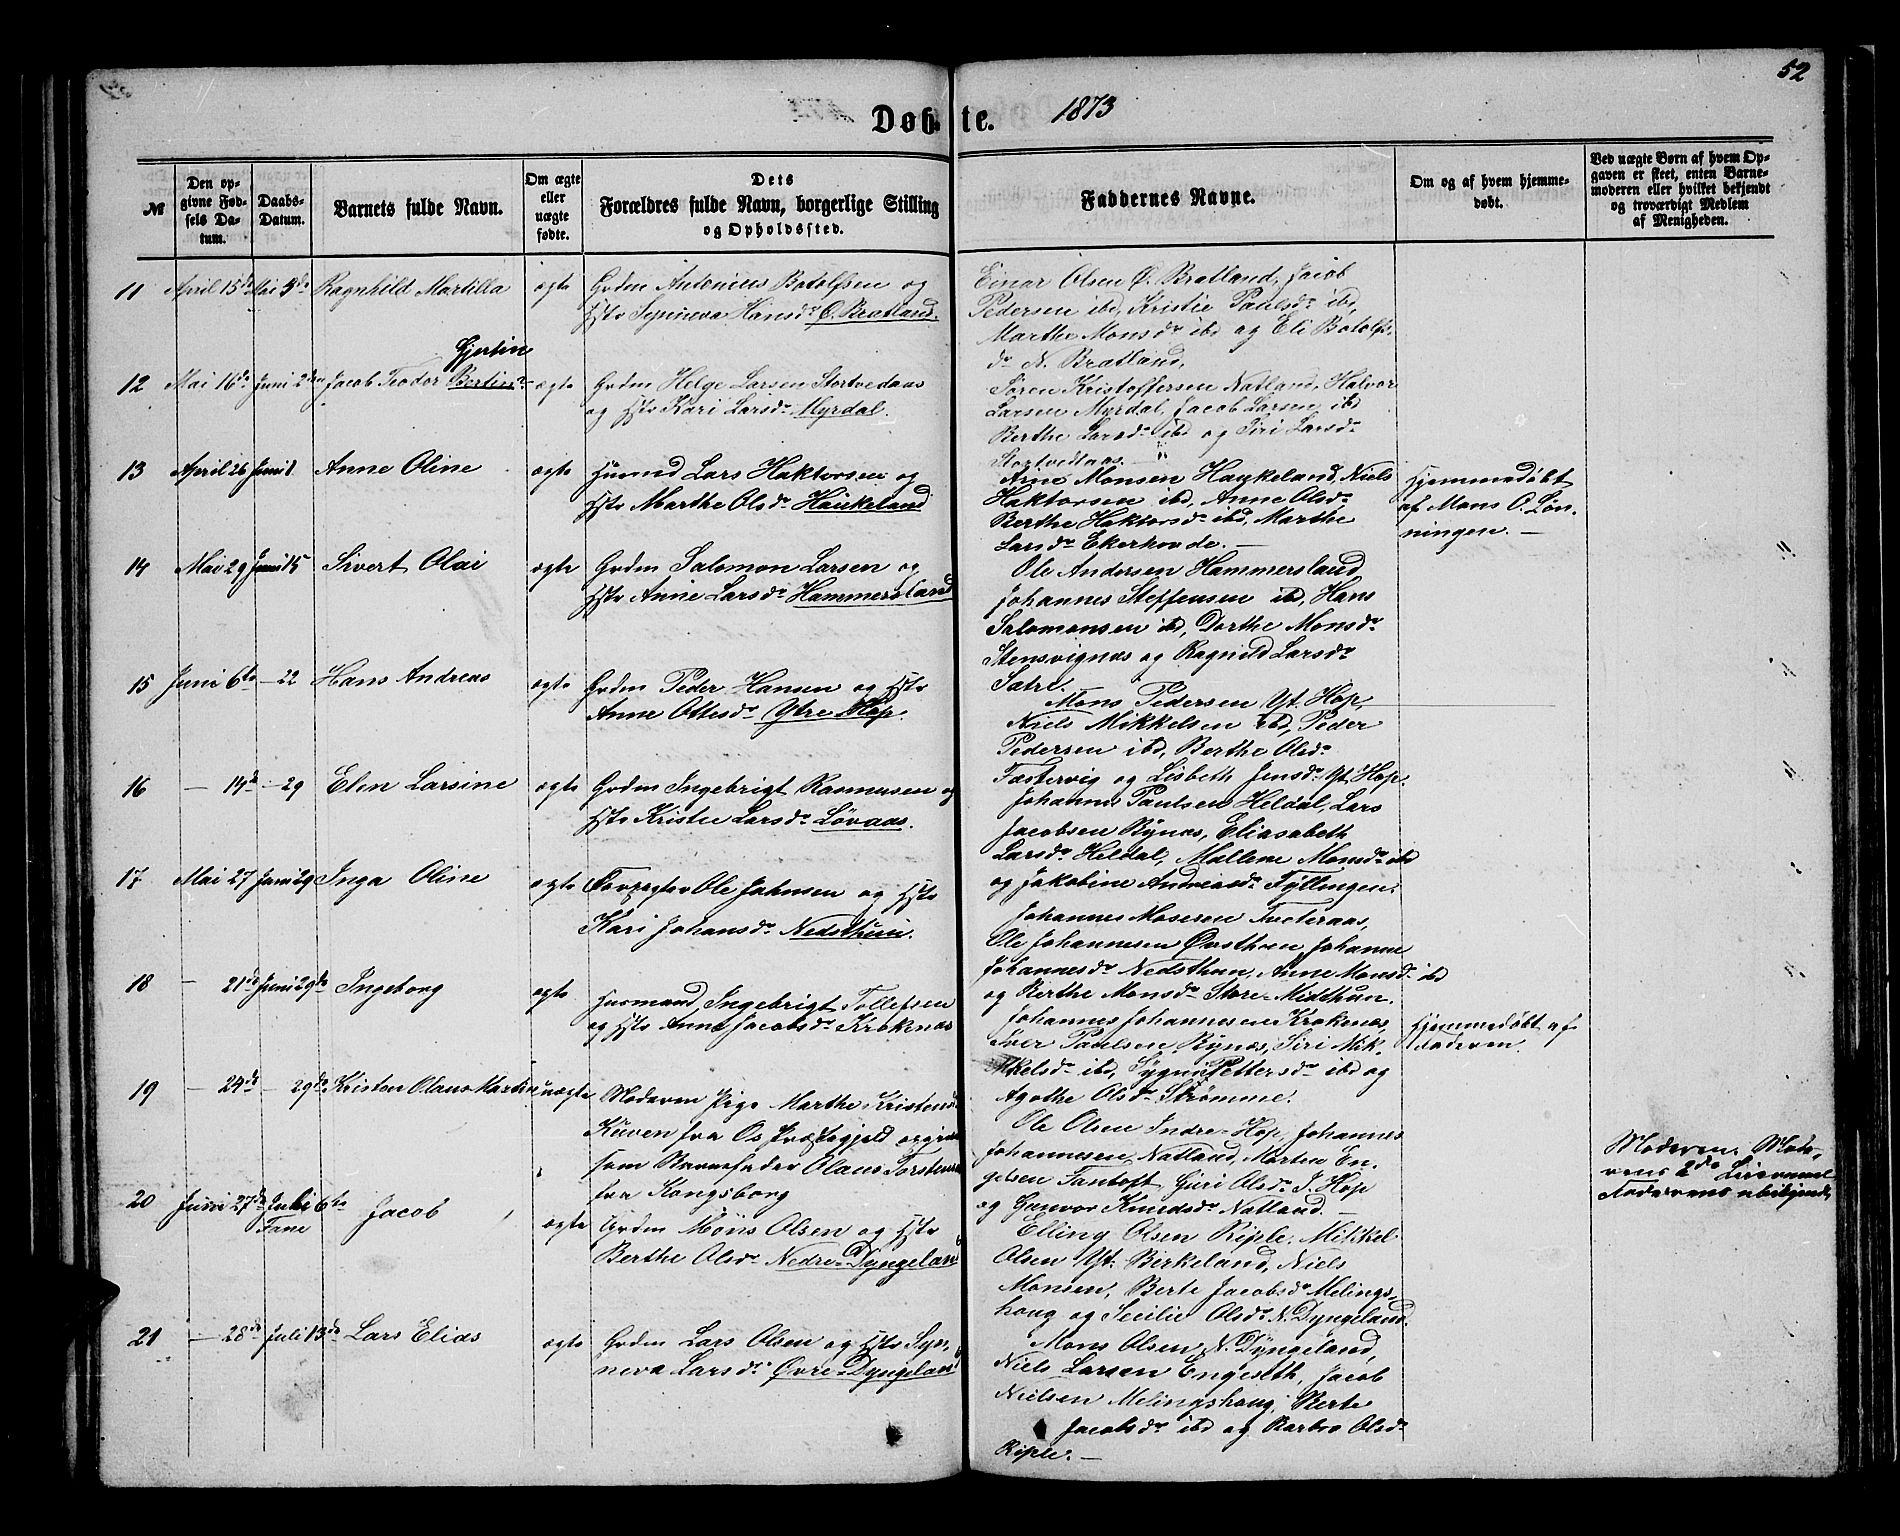 52
Døbte. 1873
№
Den opgivne Fødsels Datum.
Daabs-Datum.
Barnets fulde Navn.
Om ægte eller uægte fødte.
Dets Forældres fulde Navn, borgerlige Stilling og Opholdssted.
Faddernes Navne.
Om og af hvem hjemmedøbt.
Ved uægte Børn af hvem Opgaven er skeet, enten Barnemoderen eller hvilket bekjendt og troværdigt Medlem af Menigheden.
11 April 15de Mai 5de Ragnhild Martilia ægte Grdm Antonius Botolfsen og
Hstr Synneva Hansdr Ø. Bratland.
Einar Olsen Ø. Bratland, Jacob
Pedersen ibd, Kristie Paulsdr ibd,
Marthe Monsdr ibd og Eli Botolfs
dr N. Bratland,
12 Mai 16de Juni 2den Jacob Teodor Bertin Gjertin ægte Grdm Helge Larsen Stortvedaas
og Hstr Kari Larsdr Myrdal.
Sören Kristoffersen Natland, Halvor
Larsen Myrdal, Jacob Larsen ibd
Berthe Larsdr ibd og Siri Larsdr
Stortvedtaas.
13 April 26 Juni 1 Anne Oline ægte Husmd Lars Haktorsen og
Hstr Marthe Olsdr Haukeland
Arne Monsen Haukeland, Niels
Haktorsen ibd, Anne Olsdr
Berthe Haktorsdr ibd, Marthe
Larsdr Ekerhovde. —
Hjemmedøbt
af Mons O. Løn-
ningen. —
14 Mai 29 Juni 15 Sivert Olai ægte Grdm Salomon Larsen og
Hstr Anne Larsdr Hammersland
Ole Andersen Hammersland
Johannes Steffensen ibd, Hans
Salomonsen ibd, Dorthe Monsdr
Stensvignæs og Ragnild Larsdr
Sætre.
15 Juni 6te — 22 Hans Andreas ægte Grdm Peder Hansen og Hstr
Anne Ottesdr Ytre Hop.
Mons Pedersen Yt. Hop,
Niels Mikkelsen ibd, Peder
Pedersen ibd, Berthe Olsdr
Tæstervig og Lisbeth Jensdr Yt. Hop.
16 — 14de — 29 Elen Larsine ægte Grdm Ingebrigt Rasmusen og
Hstr Kristie Larsdr Løvaas.
Johannes Paulsen Heldal, Lars
Jacobsen Bynæs, Eliasabeth
Larsdr Heldal, Mallene Monsdr ibd
og Jakobine Andreasdr Fyllingen.
17 Mai 27 Juni 29 Inga Oline ægte Ole Johnsen og Hstr
Kari Johansdr Nedsthun.
Johannes Moseren Tveteraas,
Ole Johannesen Øvsthuen Johanne
Johannesdr Nedsthun, Anne Monsdr ibd
og Berthe Monsdr Store-Midthun.
18 — 21de Juni 29de Ingeborg ægte Husmand Ingebrigt Tollefsen
og Hstr Anna Jacobsdr Krokenæs
Johannes Johannesen Krokenæs,
Iver Paulsen Bynæs, Siri Mik-
kelsdr ibd, Pettersdr ibd og
Agathe Olsdr Strømme.
Hjemmedøbt af
Faderen.
19 — 24de — 29de Kristen Olaus Martin uægte Moderen Pige Marthe Kristensdr
Kuven fra Os Præstegjeld
som Barnefader Olaus Torstensen
fra Kongsborg
Ole Olsen Indre-Hop, Johannes
Johannesen Natland, Morten En-
gelsen Fantoft, Guri Olsdr I. Hop
og Gunvor Knudsdr Natland. —
Moderen. Mode-
rens 2de Leiermaal
Faderens ubekjendt,
20 Juni 27de Juli 6te Jacob
Fane
ægte Grdm Mons Olsen og Hstr
Berthe Olsdr Nedre-Dyngeland
Elling Olsen Riple, Mikkel
Olsen Yt. Birkeland, Niels
Monsen, Berte Jacobsdr Melings-
houg og Secilie Olsdr N. Dyngeland.
21 — 28de Juli 13de Lars Elias ægte Grdm Lars Olsen og Hstr Syn-
neva Larsdr Øvre-Dyngeland
Mons Olsen N. Dyngeland,
Niels Larsen Engeseth, Jacob
Nielsen Melingshoug, Berte
Jacobsdr ibd og Barbro Olsdr
Riple. —